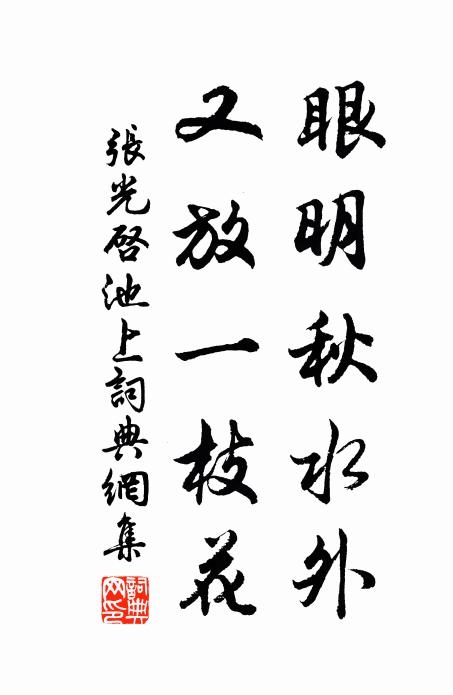 眼明秋水外
又放一枝花
張光啓池上詞典網集
詞典網印